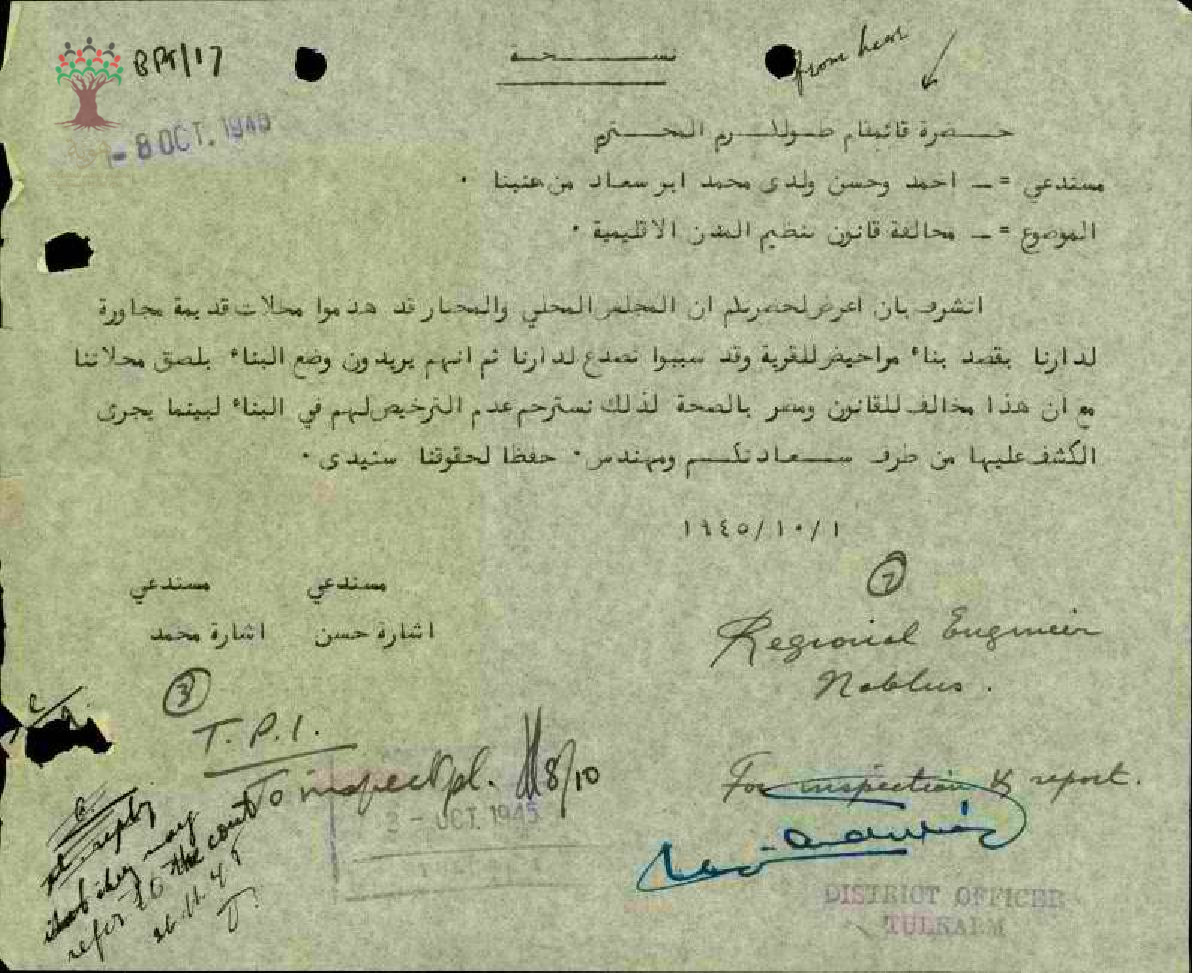 BPT/17
نسخة
from here
- 8 OCT. 1945
حضرة قائمقام طولكرم المحترم
مستدعي = ـ احمد وحسن ولدى محمد ابو سعاد من عنبتا ٠
الموضوع = ـ مخالفة قانون تنظيم المدن الاقليمية ٠
اتشرف بان اعرض لحضرتكم ان المجلس المحلي والمختار قد هدموا محلات قديمة مجاورة
لدارنا بقصد بناء مراحيض للقرية وقد سببوا تصدع لدارنا ثم انهم يريدون وضع البناء بلصق محلاتنا
مع ان هذا مخالف للقانون ومضر بالصحة لذلك نسترحم عدم الترخيص لهم في البناء لبينما يجرى
الكشف عليها من طرف سعادتكم ومهندس٠ حفظا لحقوقنا سيدى ٠
١٩٤٥/١٠/١
مستدعي مستدعي
اشارة حسن اشارة محمد
2
Regional Engineer
Nablus.
For inspection & report.
DISTRICT OFFICER
TULKARM
3
T.P.I.
To inspect pl. 8/10
3 - OCT. 1945
reply
that they may
refer to the court
26.11.45